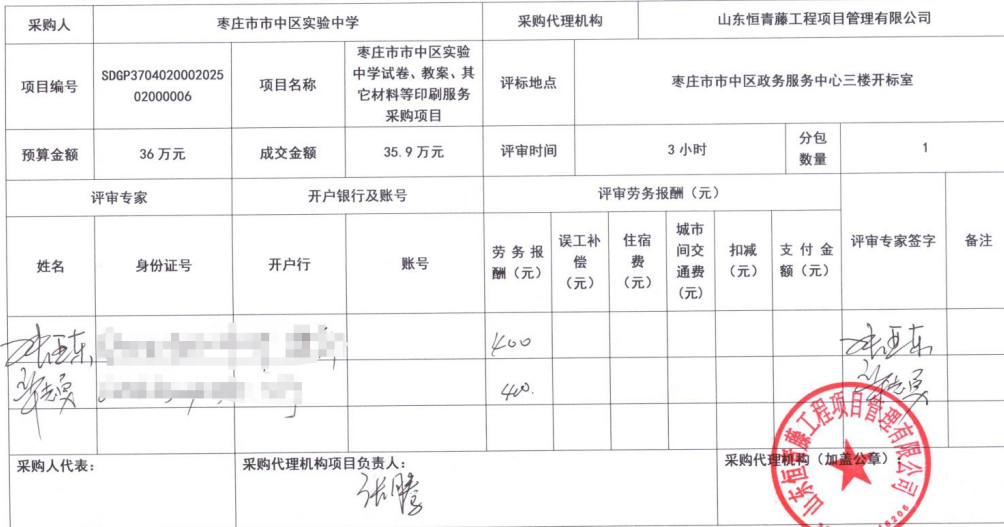 采购人 枣庄市市中区实验中学 采购代理机构 山东恒青藤工程项目管理有限公司
项目编号 SDGP3704020002025
02000006
项目名称 枣庄市市中区实验
中学试卷、教案、其
它材料等印刷服务
采购项目
评标地点 枣庄市市中区政务服务中心三楼开标室
预算金额 36万元 成交金额 35.9万元 评审时间 3小时 分包
数量
1
评审专家 开户银行及账号 评审劳务报酬（元） 评审专家签字 备注
姓名 身份证号 开户行 账号
劳务报
酬（元）
误工补
偿
（元）
住宿
费
（元）
城市
间交
通费
（元）
扣减
（元）
支付金
额（元）
400
400.
采购人代表： 采购代理机构项目负责人： 采购代理机构（加盖公章）：
张腾
山东恒青藤工程项目管理有限公司